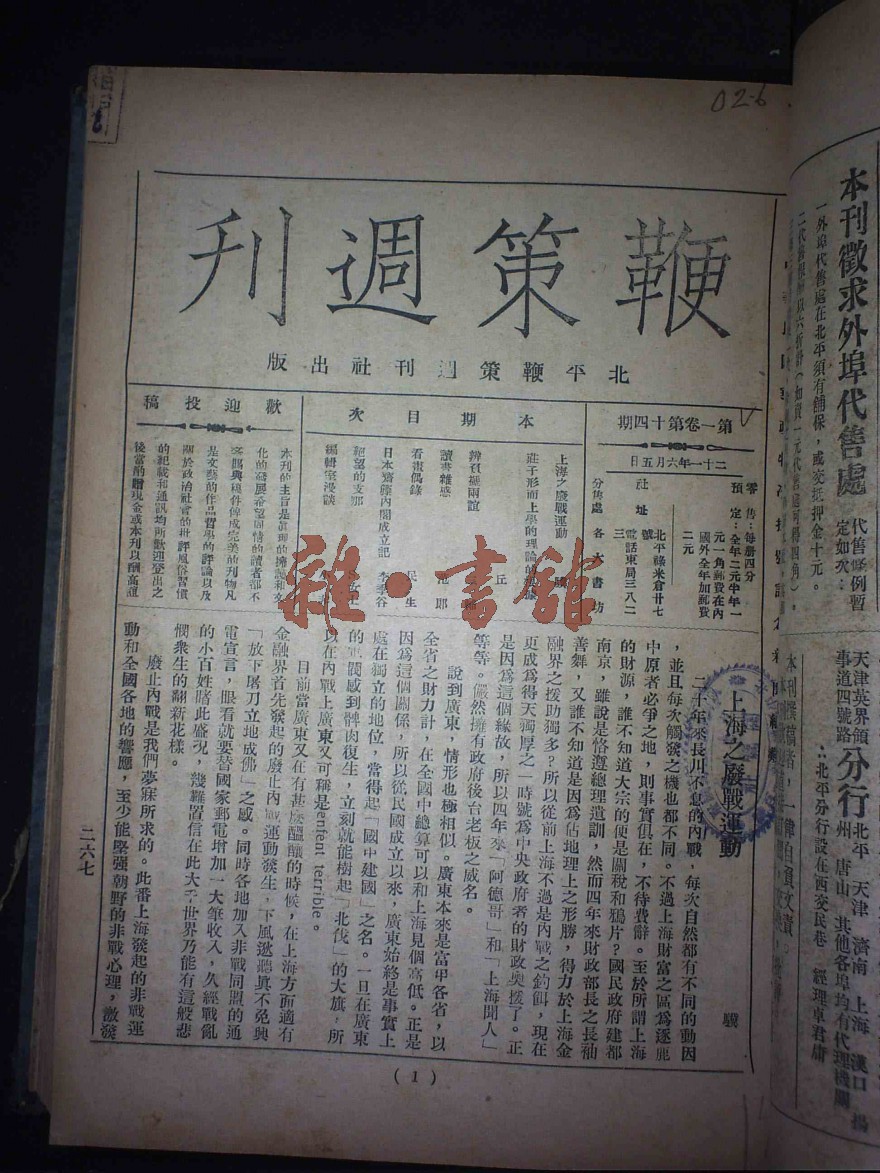 02-6
鞭策週刊
北平鞭策週刊社出版
第一卷第十四期
二十一年六月五日
零售：每册四分
預定：全年二元半年一
元一角郵費在內
國外全年加郵費
二元
社址 北平祿米倉廿七
號
電話東局三八二
三
分售處 各大書坊
本期目次
上海之廢戰運動
莊子形而上學的理論的
辨
讀書雜感
看畫偶錄 民生
日本齋藤內閣成立記 李季谷
絕望的支那
編輯室漫談
歡迎投稿
本刊的主旨是真理的擁護和文
化的發展希望同情的讀者都不
客賜與稿件俾成完美的刊物凡
是文藝的作品哲學的評論以及
關於政治社會的批評風俗習慣
的記載和通訊均所歡迎登出之
後當酌贈現金或本刊以酬高誼
上海之廢戰運動
驥
二十年來長川不息的內戰，每次自然都有不同的動因
，並且每次觸發之機也都不同。不過上海財富之區爲逐鹿
中原者必爭之地，則事實俱在，不待費辭。至於所謂上海
的財源，誰不知道大宗的便是關稅和鴉片？國民政府建都
南京，雖說是恪遵總理遺訓，然而四年來財政部長之長袖
善舞，又誰不知道是因爲佔地理上之形勝，得力於上海金
融界之援助獨多？所以從前上海不過是內戰之釣餌，現在
更成爲得天獨厚之一時號爲中央政府者的財政奧援了。正
是因爲這個緣故，所以四年來「阿德哥」和「上海聞人」
等等。儼然擁有政府後台老板之威名。
說到廣東，情形也極相似。廣東本來是富甲各省，以
全省之財力計，在全國中總算可以和上海見個高低。正是
因爲這個關係，所以從民國成立以來，廣東始終是事實上
處在獨立的地位，當得起「國中建國」之名。一旦在廣東
的軍閥感到髀肉復生，立刻就能樹起「北伐」的大旗，所
以在內戰上廣東又可稱是enfent terrible。
目前當廣東又在有甚麽醞釀的時候，在上海方面適有
金融界首先發起的廢止內戰運動發生，下風逖聽眞不免興
「放下屠刀立地成佛」之感。同時各地加入非戰同盟的通
電宣言，眼看就要替國家郵電增加一大筆收入，久經戰亂
的小百姓睹此盛況，幾難置信在此大千世界乃能有這般悲
憫衆生的翻新花樣。
廢止內戰是我們夢寐所求的。此番上海發起的非戰運
動和全國各地的響應，至少能堅强朝野的非戰心理，激發
二六七
(1)
雜·書館
本刊徵求外埠代售處
代售條例暫
定如次：
一外埠代售處在北平須有鋪保，或交抵押金十元。
分行
北平 天津 濟南 上海 漢口 揚
州 唐山 其他各埠均有代理機關
天津英界領
事道四號路
∴北平分行設在西交民巷 經理卓君庸
本刊撰稿者，一律自負文責。